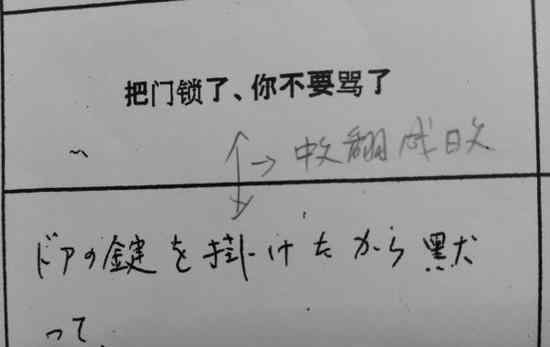 把门锁了、你不要骂了
→ 中文翻成日文
ドアの鍵を掛けたから黙
って